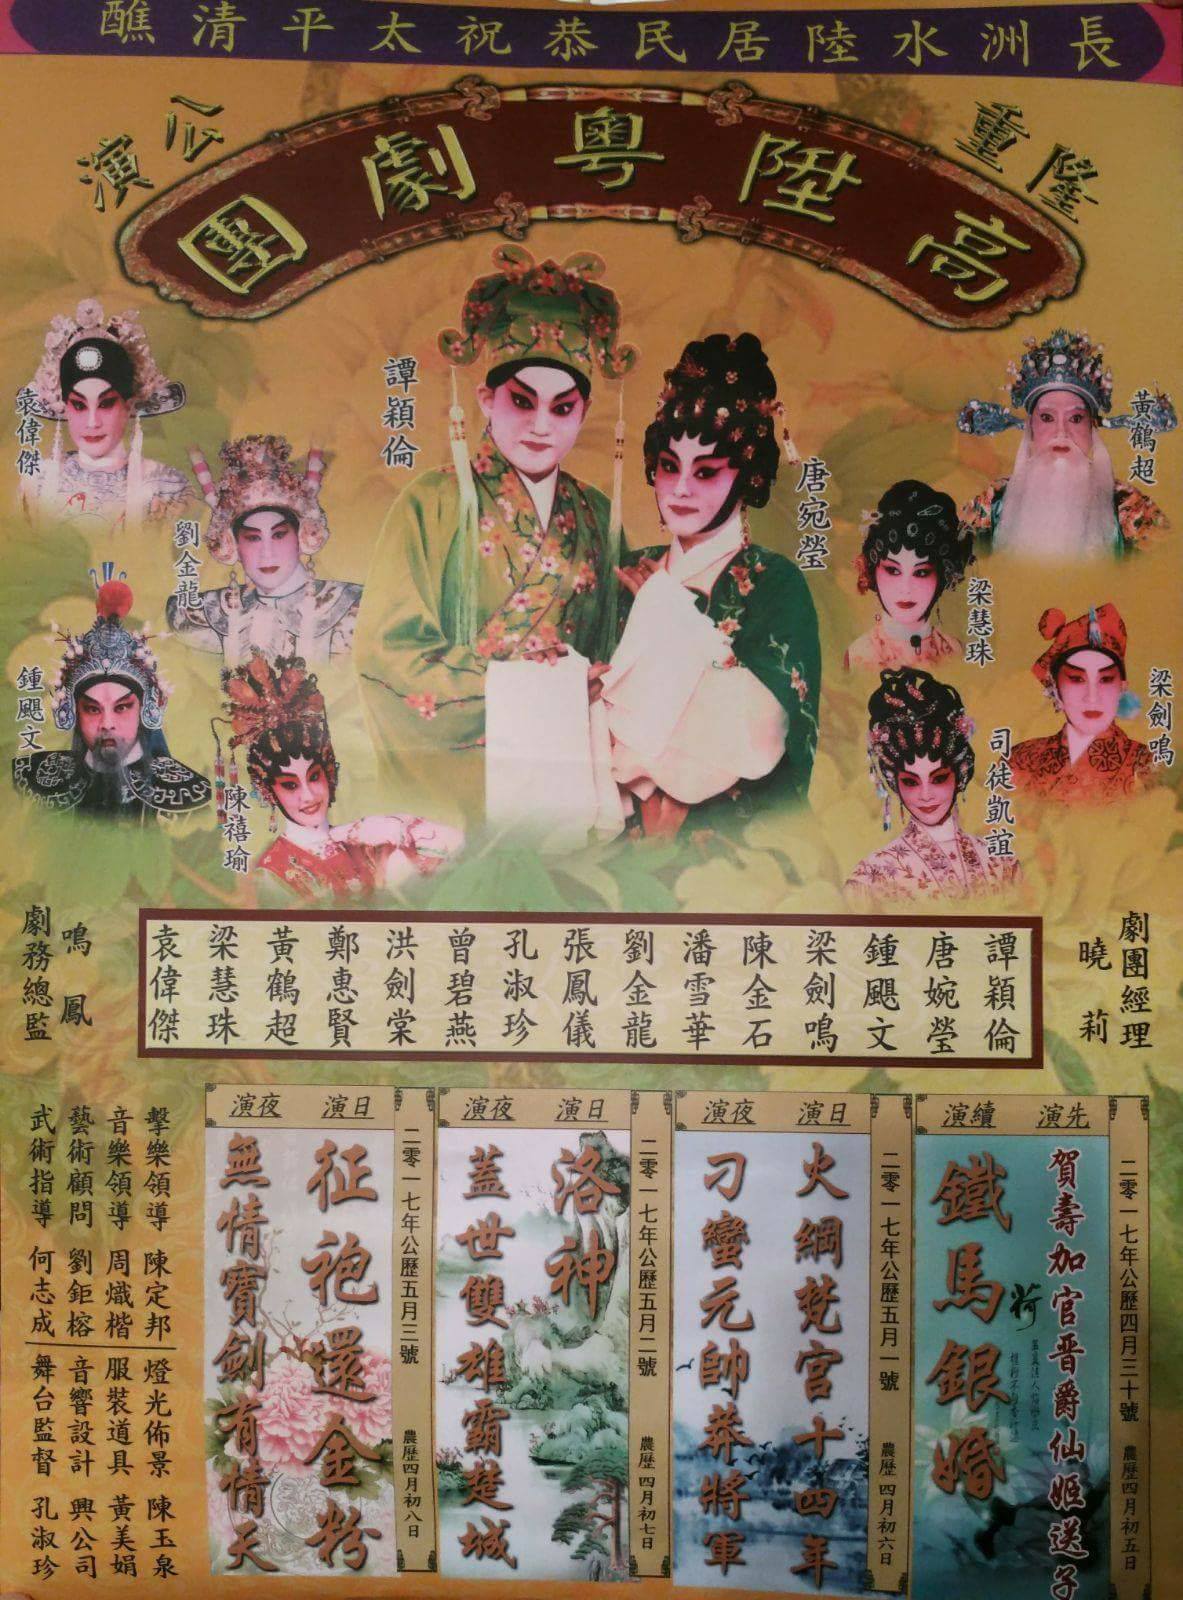 長洲水陸居民恭祝太平清醮
隆重
公演
高陞粵劇團
袁偉傑
譚穎倫
黃鶴超
唐宛瑩
劉金龍
梁慧珠
鍾颶文
梁劍鳴
陳禧瑜
司徒凱誼
劇團經理
曉莉
譚穎倫
唐婉瑩
鍾颶文
梁劍鳴
陳金石
潘雪華
劉金龍
張鳳儀
孔淑珍
曾碧燕
洪劍棠
鄭惠賢
黃鶴超
梁慧珠
袁偉傑
鳴鳳
劇務總監
二零一七年公歷四月三十號 農歷四月初五日
先演
賀壽加官晋爵仙姬送子
續演
鐵馬銀婚
二零一七年公歷五月一號 農歷四月初六日
日演
火網梵宮十四年
夜演
刁蠻元帥莽將軍
二零一七年公歷五月二號 農歷四月初七日
日演
洛神
夜演
蓋世雙雄霸楚城
二零一七年公歷五月三號 農歷四月初八日
日演
征袍還金粉
夜演
無情寶劍有情天
擊樂領導 陳定邦
音樂領導 周熾楷
藝術顧問 劉鉅榕
武術指導 何志成
燈光佈景 陳玉泉
服裝道具 黃美娟
音響設計 興公司
舞台監督 孔淑珍